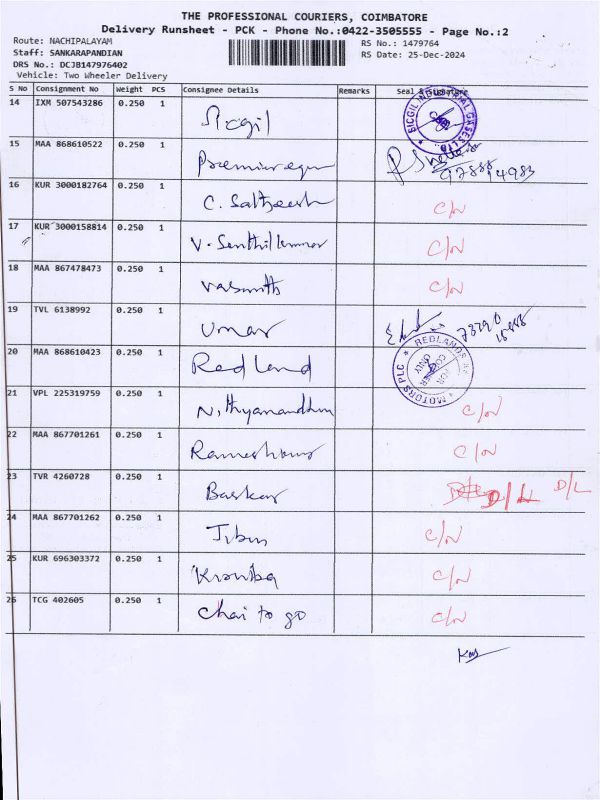 THE PROFESSIONAL COURIERS, COIMBATORE
Delivery Runsheet - PCK - Phone No.:0422-3505555 - Page No.:2
Route: NACHIPALAYAM
RS No.: 1479764
Staff: SANKARAPANDIAN
RS Date: 25-Dec-2024
DRS No.: DCJB147976402
Vehicle: Two Wheeler Delivery
S No Consignment No Weight PCS Consignee Details Remarks Seal & Signature
14 IXM 507543286 0.250 1 Sicgil
SICGIL INDUSTRIAL GASES LTD.
15 MAA 868610522 0.250 1
16 KUR 3000182764 0.250 1 C. Satheesh C/N
17 KUR 3000158814 0.250 1 V. Senthilkumar C/N
18 MAA 867478473 0.250 1 Vasanth C/N
19 TVL 6138992 0.250 1 Umar
20 MAA 868610423 0.250 1 Redland
REDLANDS MOTORS PLC
FOR COURIER ONLY
21 VPL 225319759 0.250 1 Nithyanandham C/N
22 MAA 867701261 0.250 1 C/N
23 TVR 4260728 0.250 1 Baskar D/L D/L
24 MAA 867701262 0.250 1 Jibin C/N
25 KUR 696303372 0.250 1 C/N
26 TCG 402605 0.250 1 Chai to go C/N